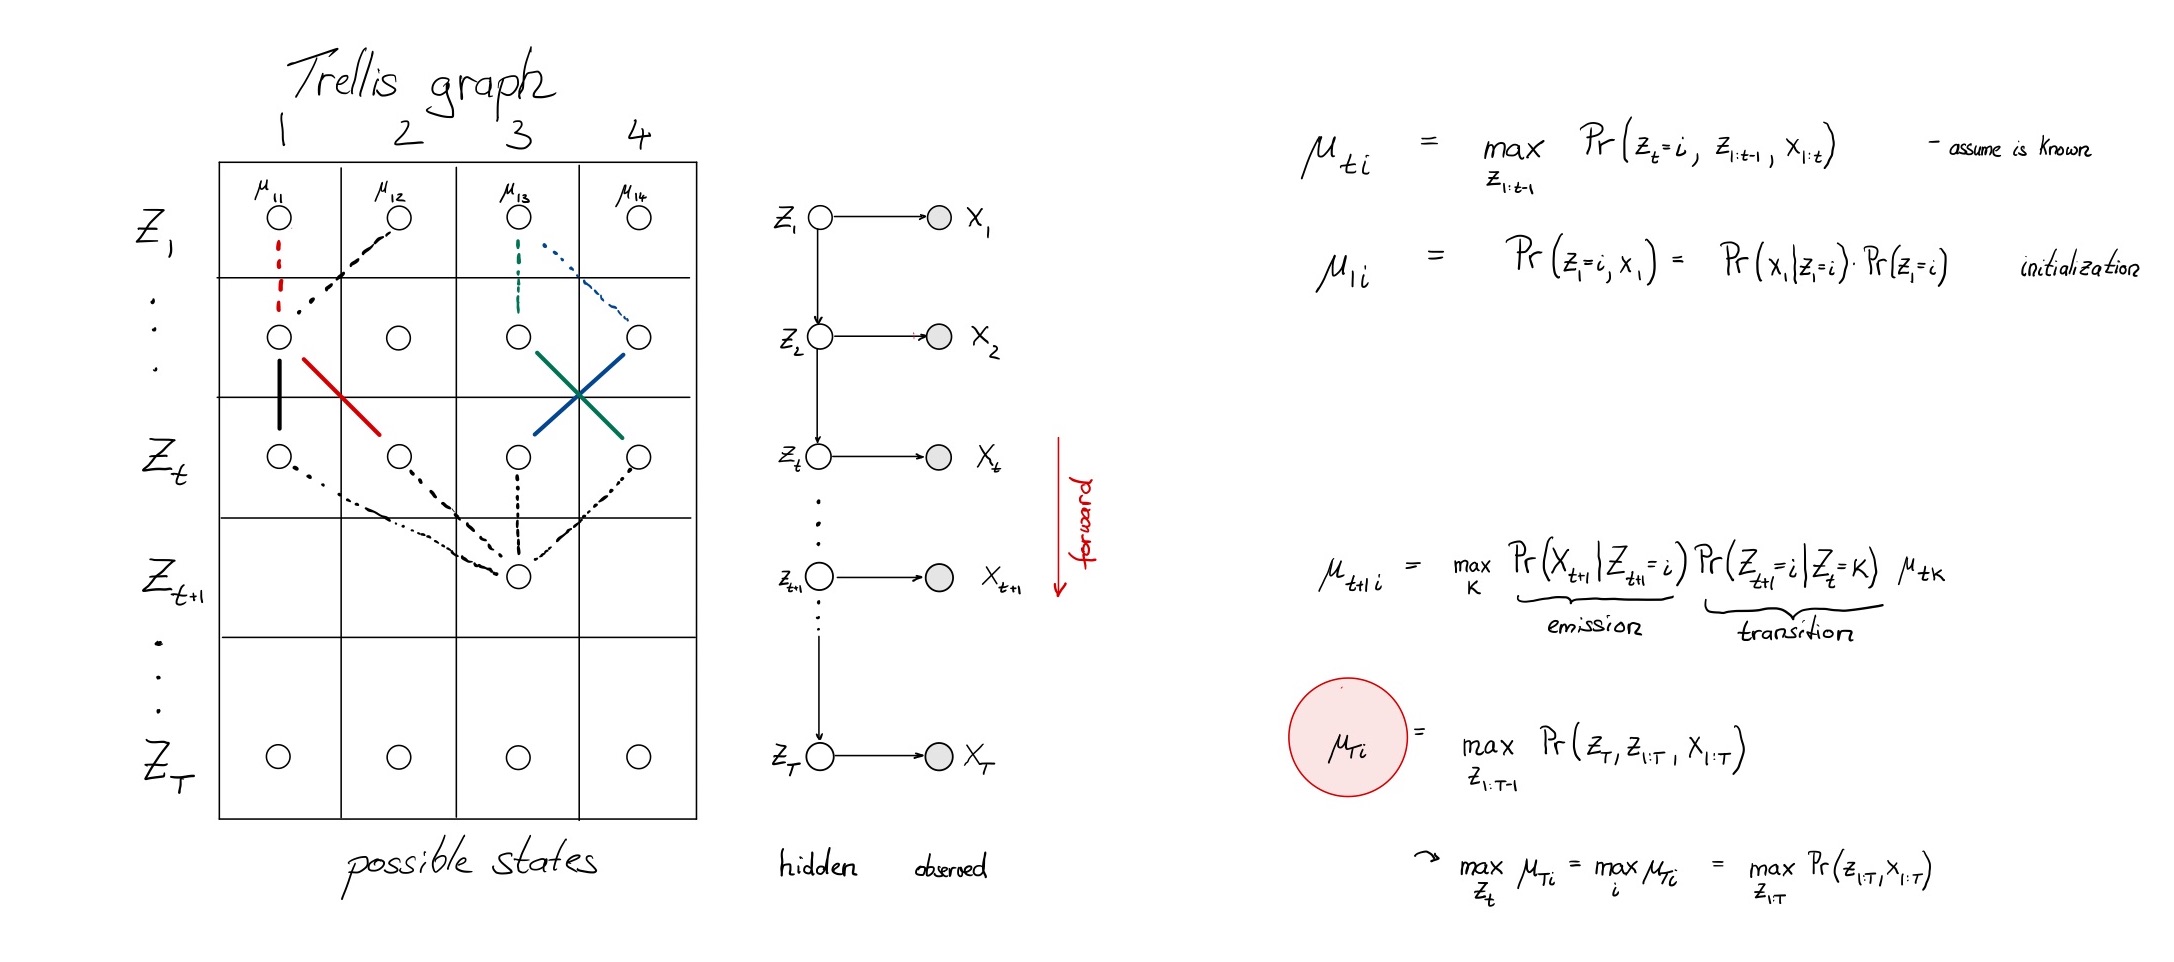 Trellis graph
1 2 3 4
μ₁₁ μ₁₂ μ₁₃ μ₁₄
Z₁
Z_t
Z_{t+1}
Z_T
possible states
z₁ x₁
z₂ x₂
z_t x_t
z_{t+1} x_{t+1}
z_T x_T
hidden observed
forward
μ_{ti} = max_{z_{1:t-1}} Pr(z_t=i, z_{1:t-1}, x_{1:t}) - assume is known
μ_{1i} = Pr(z₁=i, x₁) = Pr(x₁|z₁=i)·Pr(z₁=i) initialization
μ_{t+1 i} = max_K Pr(X_{t+1}|Z_{t+1}=i) Pr(Z_{t+1}=i|Z_t=K) μ_{tK}
emission transition
μ_{Ti} = max_{z_{1:T-1}} Pr(z_T, z_{1:T}, x_{1:T})
↷ max_{z_t} μ_{Ti} = max_i μ_{Ti} = max_{z_{1:T}} Pr(z_{1:T}, x_{1:T})